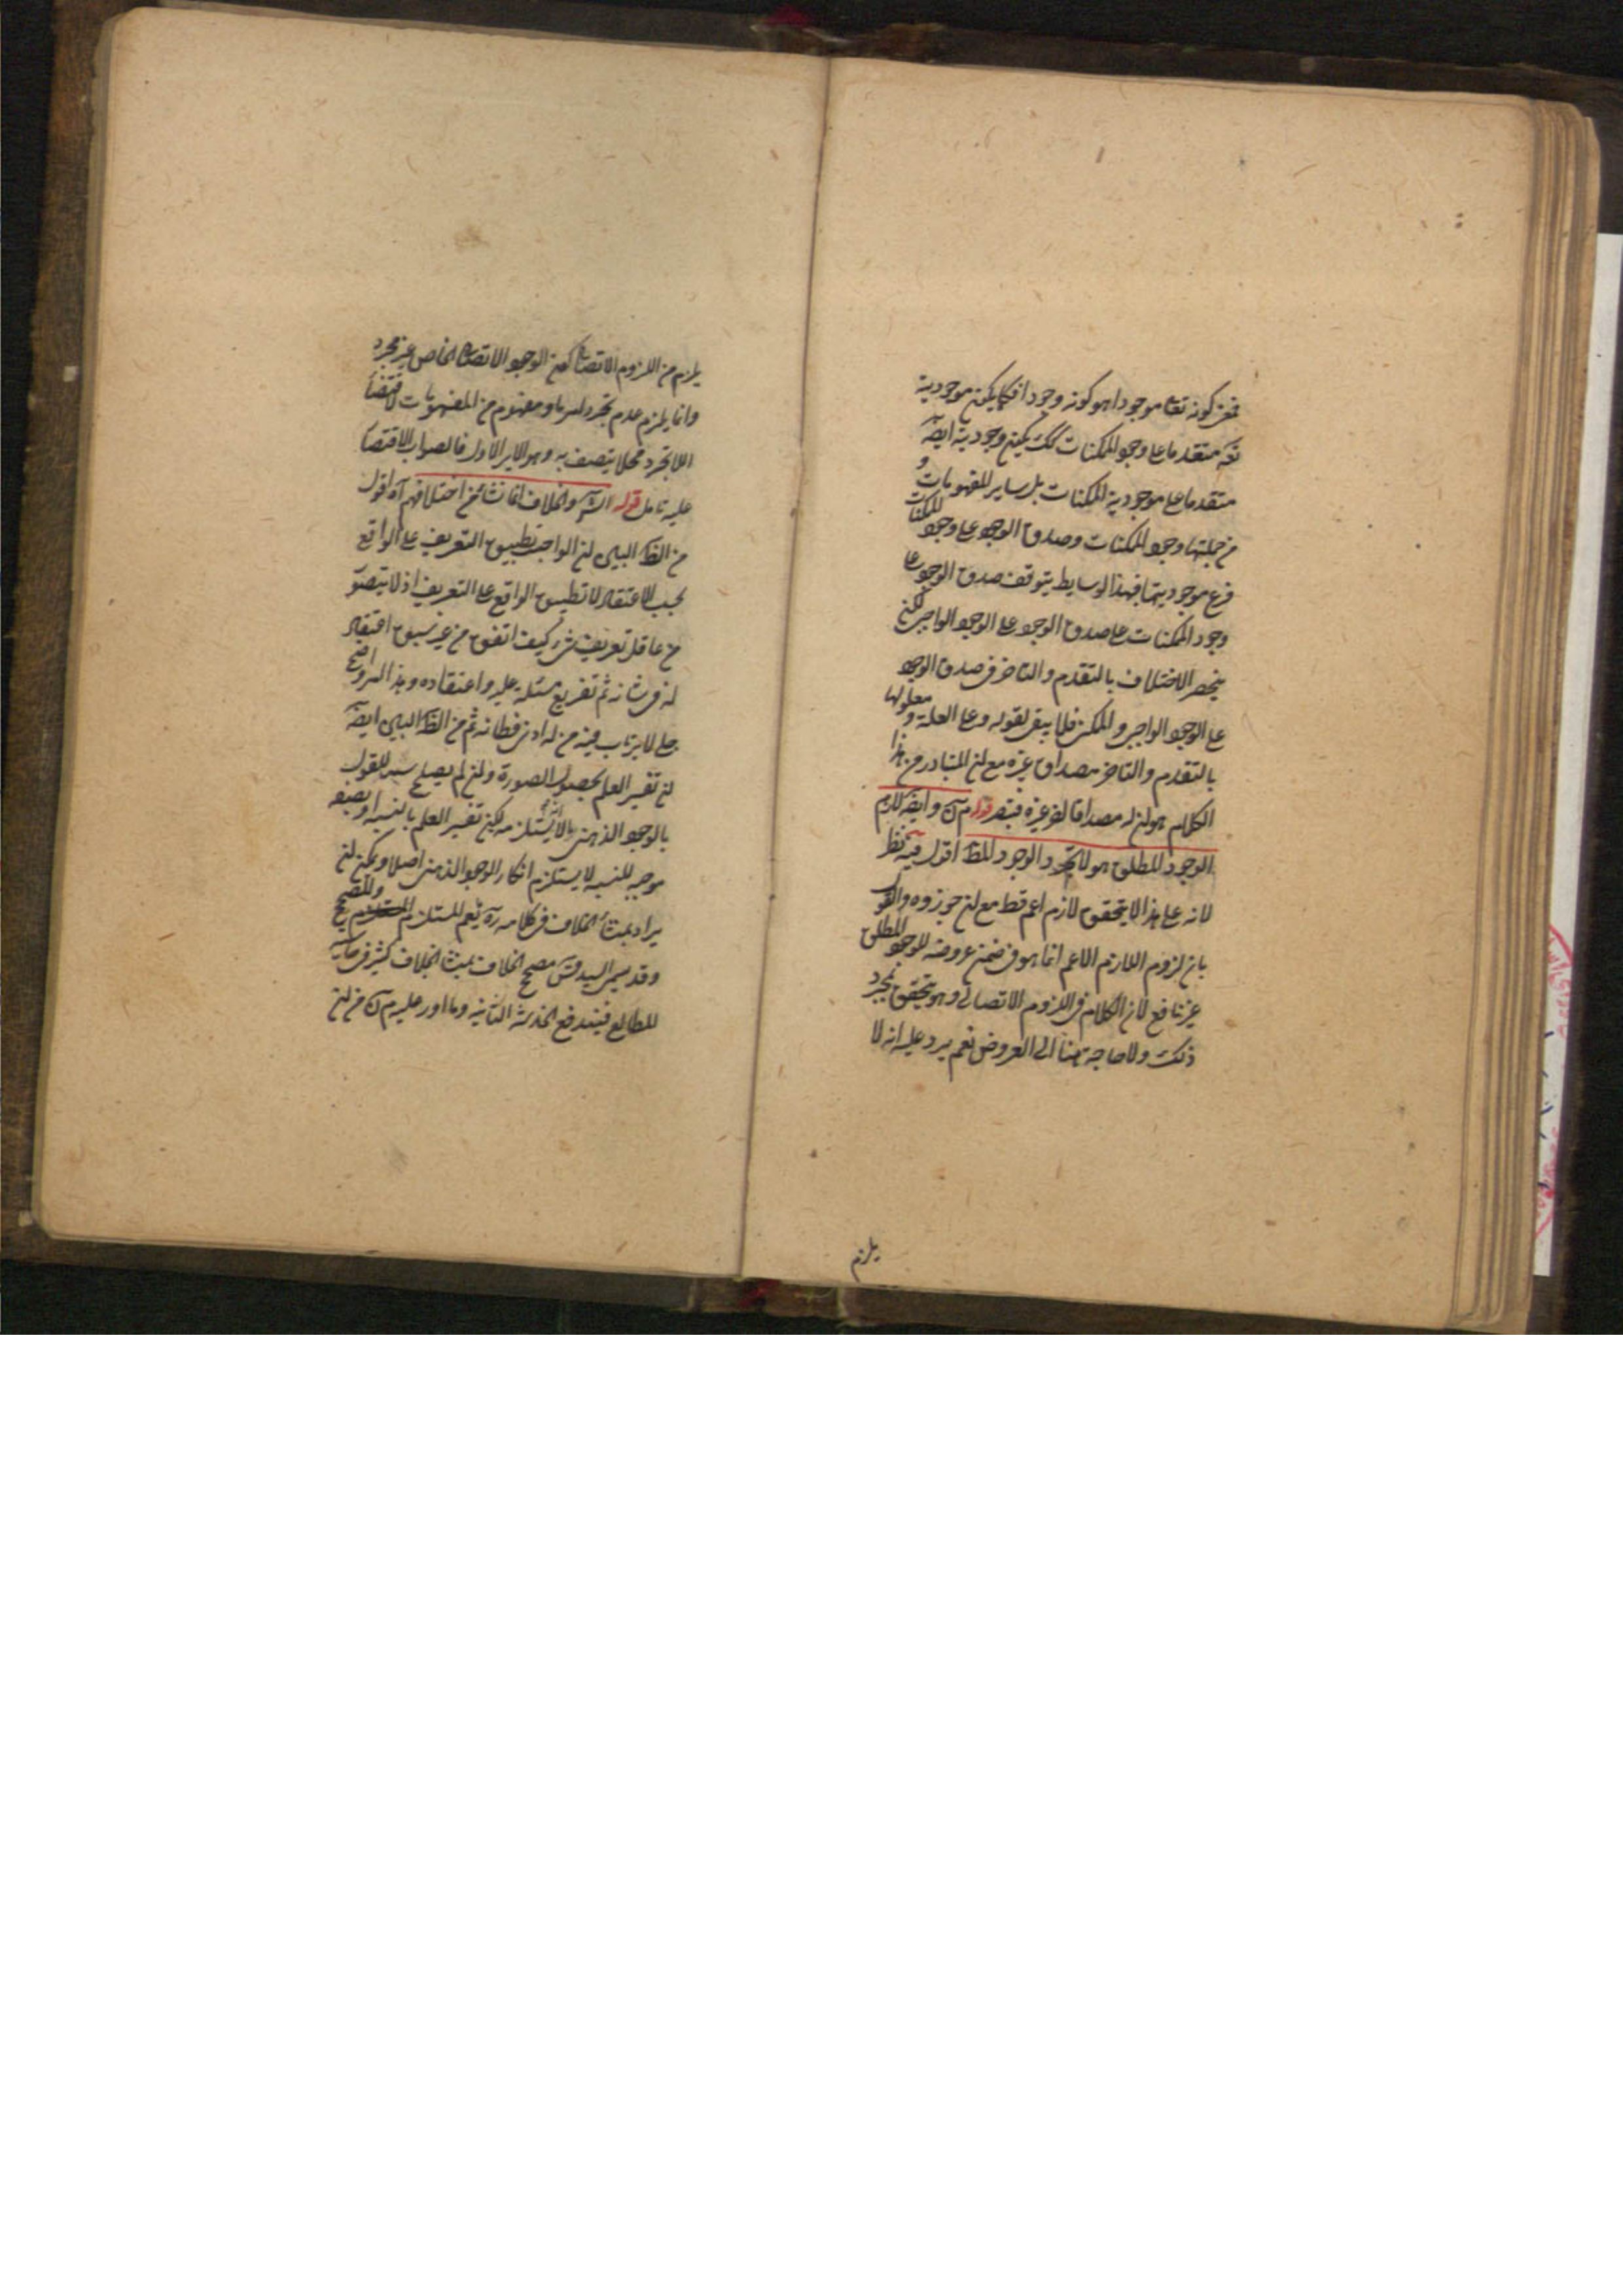 فمعنى كونه تعالى موجودا هو كونه وجودا فكما يكون موجودية
تعه متقدما على وجود الممكنات كك يكون وجوديته ايضه
متقدما على موجودية الممكنات بل ساير المفهومات و
من جملتها وجود الممكنات وصدق الوجود على وجود الممكنات
فرع موجوديتها فبهذا الوسايط يتوقف صدق الوجود على
وجود الممكنات على صدق الوجود على الوجود الواجبى لكن
ينحصر الاختلاف بالتقدم والتاخر فى صدق الوجود
على الوجود الواجبى والممكن فلا يبقى لقوله وعلى العلة ومعلولها
بالتقدم والتاخر مصداق غيره مع ان المتبادر من هذا
الكلام هو ان له مصداقا اخر غيره فتبصر قوله م ن وايضه لازم
الوجود المطلق هو لا تجرد الوجود المط اقول فيه نظر
لانه على هذا لا يتحقق لازم اعم قط مع ان جوزوه والقول
بان لزوم اللازم الاعم انما هو فى ضمن عروضه للوجود المطلق
غير نافع لان الكلام فى اللزوم الاتصالى وهو يتحقق بمجرد
ذلك ولا حاجة هنا الى العروض نعم يرد عليه انه لا
يلزم
يلزم من اللزوم الاتصالى كون الوجود الاتصالى الخاص غير مجرد
وانما يلزم عدم تجرد امر ما ومفهوم من المفهومات لاقتضا
اللاتجرد محلا يتصف به وهو الاير الاول فالصواب الاقتصا
عليه تامل قوله الش والخلاف انما نشا من اختلافهم آه اقول
من الظ البين ان الواجب تطبيق التعريف على الواقع
بحسب الاعتقاد لا تطبيق الواقع على التعريف اذ لا يتصو
من عاقل تعريف شىء كيف اتفق من غير سبق اعتقاد
له فى شانه ثم تفريع مسئلة عليه واعتقاده وهذا امر واضح
جلى لا يرتاب فيه من له ادنى فطانه ثم من الظ البين ايضه
ان تفسير العلم بحصول الصورة وان لم يصلح سببا للقول
بالوجود الذهنى لكنه يستلزمه لكن تفسير العلم بالنسبة او بصفة
موجبه للنسبه لا يستلزم انكار الوجود الذهنى اصلا ويمكن ان
يراد بمنشا الخلاف فى كلامه ره نعم المستلزم والمصحح
وقد سمى السيد قدس مصحح الخلاف بمنشا الخلاف كثيرا فى حاشيه
المطالع فيندفع الخدشة الثانية وما اورد عليه م ن من ان